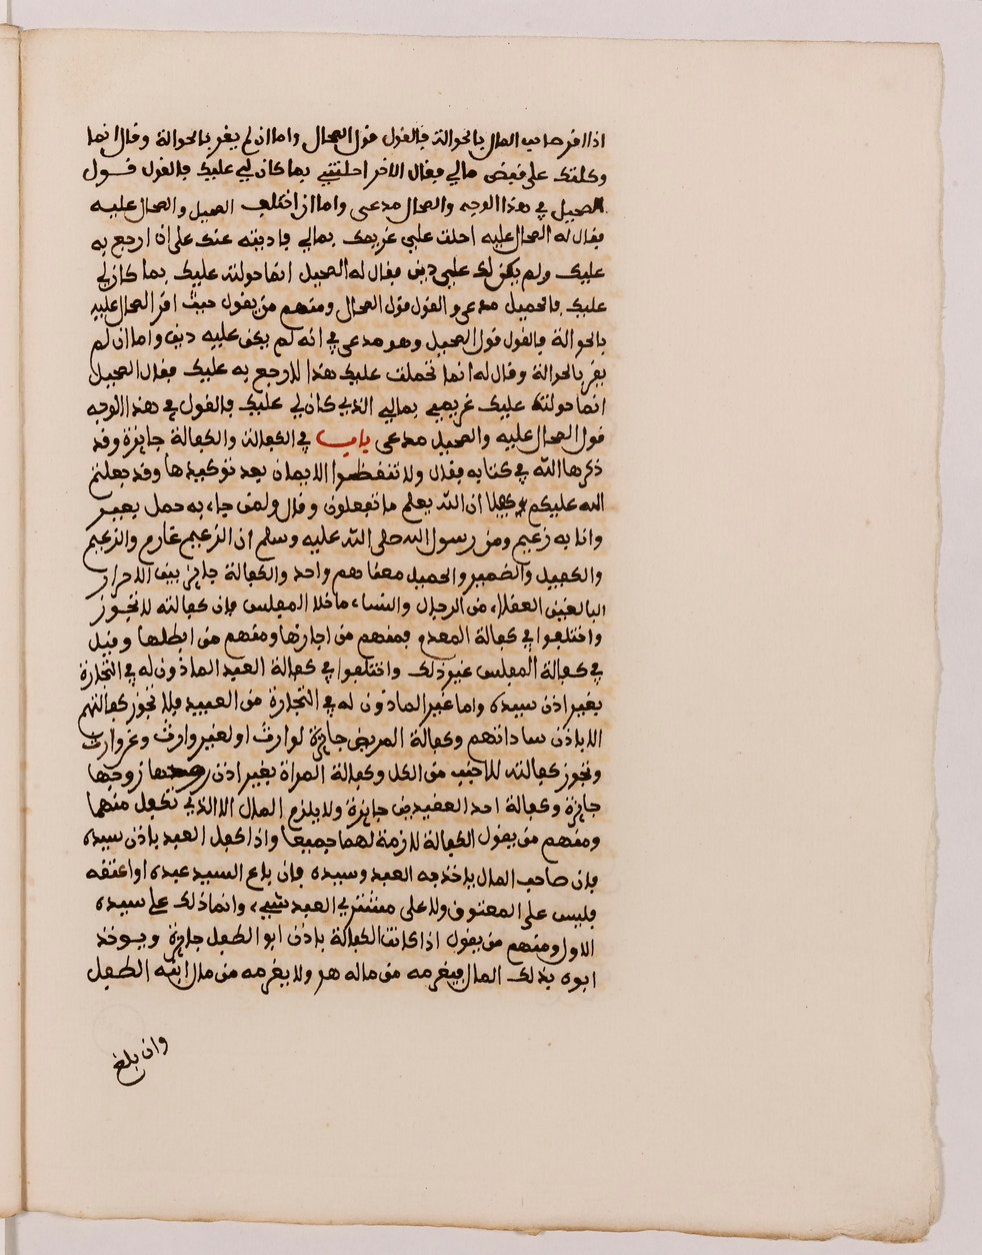 اذا اقر صاحب المال بالحوالة فالقول قول المحال واما ان لم يقر بالحوالة وقال انما
وكلتك على قبض مالي فقال الاخر احلتني بما كان لي عليك فالقول قول
المحيل في هذا الوجه والمحال مدعى واما ان اختلف المحيل والمحال عليه
فقال له المحال عليه احلت علي غريمك بمالي فاديته عنك على ان ارجع به
عليك ولم يكن لك علي دين فقال له المحيل انما حولته عليك بما كان لي
عليك فالحميل مدعى والقول قول المحال ومنهم من يقول حيث اقر المحال عليه
بالحوالة فالقول قول المحيل وهو مدعى في انه لم يكن عليه دين واما ان لم
يقر بالحوالة وقال له انما تحملت عليك هذا لارجع به عليك فقال المحيل
انما حولته عليك غريمي بمالي الذي كان لي عليك فالقول في هذا الوجه
قول المحال عليه والمحيل مدعى باب في الكفالة والكفالة جايزة وقد
ذكرها الله في كتابه فقال ولا تنقضوا الايمان بعد توكيدها وقد جعلتم
الله عليكم كفيلا ان الله يعلم ما تفعلون وقال ولمن جاء به حمل بعير
وانا به زعيم ومن رسول الله صلى الله عليه وسلم ان الزعيم غارم والزعيم
والكفيل والضمير والحميل معناهم واحد والكفالة جايز بين الاحرار
البالغين العقلاء من الرجال والنساء ما خلا المفلس فان كفالته لا تجوز
واختلفوا في كفالة المعدم فمنهم من اجازها ومنهم من ابطلها وقيل
في كفالة المفلس غير ذلك واختلفوا في كفالة العبد الماذون له في التجارة
بغير اذن سيده واما غير الماذون له في التجارة من العبيد فلا تجوز كفالتهم
الا باذن ساداتهم وكفالة المريض جايزة لوارث او لغير وارث وعن وارث
وتجوز كفالته للاجنب من الكل وكفالة المراة بغير اذن زوجها
جايزة وكفالة احد العقيدين جايزة ولا يلزم المال الا الذي تكفل منهما
ومنهم من يقول الكفالة لازمة لهما جميعا واذا كفل العبد باذن سيده
فان صاحب المال ياخذ به العبد وسيده فان باع السيد عبده او اعتقه
فليس على المعتوق ولا على مشتري العبد شيء وانما ذلك على سيده
الاول ومنهم من يقول اذا كانت الكفالة باذن ابو الطفل جايزة ويوخذ
ابوه بذلك المال فيغرمه من ماله هو ولا يغرمه من مال ابنه الطفل
وان بلغ